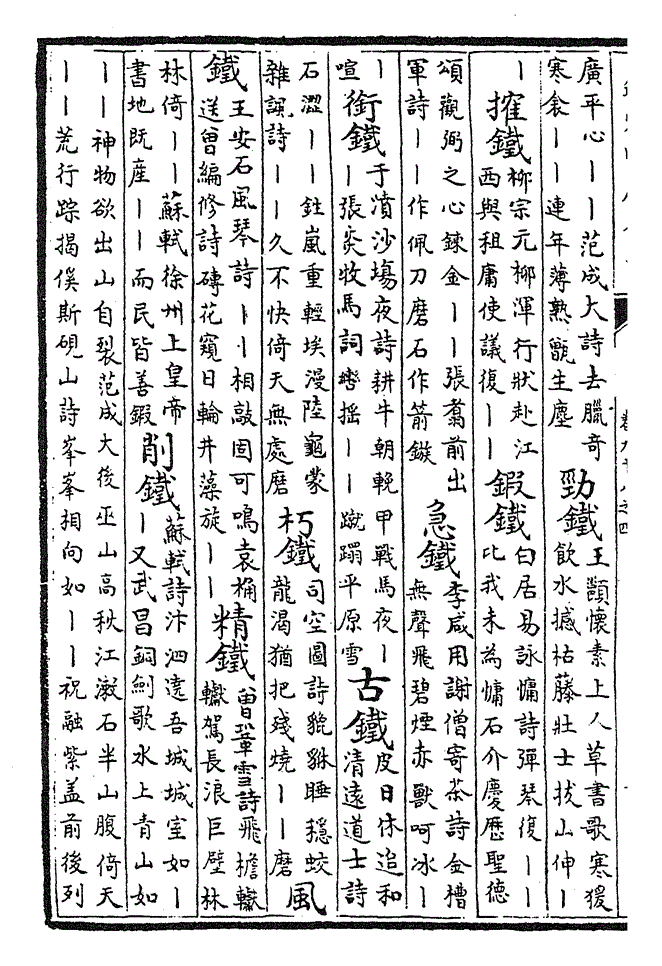 廣平心丨丨范成大詩去臘奇
寒衾丨丨連年薄熟甑生塵
勁鐵
王顗懷素上人草書歌寒猨
飲水撼枯藤壯士拔山伸丨
丨
摧鐵
柳宗元柳渾行狀赴江
西與租庸使議復丨丨
鍛鐵
白居易詠慵詩彈琴復丨丨
比我未為慵石介慶歷聖德
頌觀弼之心鍊金丨丨張翥前出
軍詩丨丨作佩刀磨石作箭鏃
急鐵
李咸用謝僧寄茶詩金槽
無聲飛碧煙赤獸呵冰丨
丨
喧
銜鐵
于濆沙塲夜詩耕牛朝輓甲戰馬夜丨
丨張炎牧馬詞摇丨丨蹴蹋平原雪
古鐵
皮日休追和
清遠道士詩
石澀丨丨鉎嵐重輕埃漫陸龜蒙
雜諷詩丨丨久不快倚天無處磨
朽鐵
司空圖詩貔貅睡穩蛟
龍渴猶把殘燒丨丨磨
風
鐵
王安石風琴詩丨丨相敲固可鳴袁桷
送曾編修詩磚花窺日輪井藻旋丨丨
精鐵
曾鞏雪詩飛檐轣
轣駕長浪巨壁林
林倚丨丨蘇軾徐州上皇帝
書地既産丨丨而民皆善鍛
削鐵
蘇軾詩汴泗遶吾城城室如丨
丨又武昌銅劍歌水上青山如
丨丨神物欲出山自裂范成大後巫山高秋江漱石半山腹倚天
丨丨荒行踪揭傒斯硯山詩峯峯相向如丨丨祝融紫盖前後列